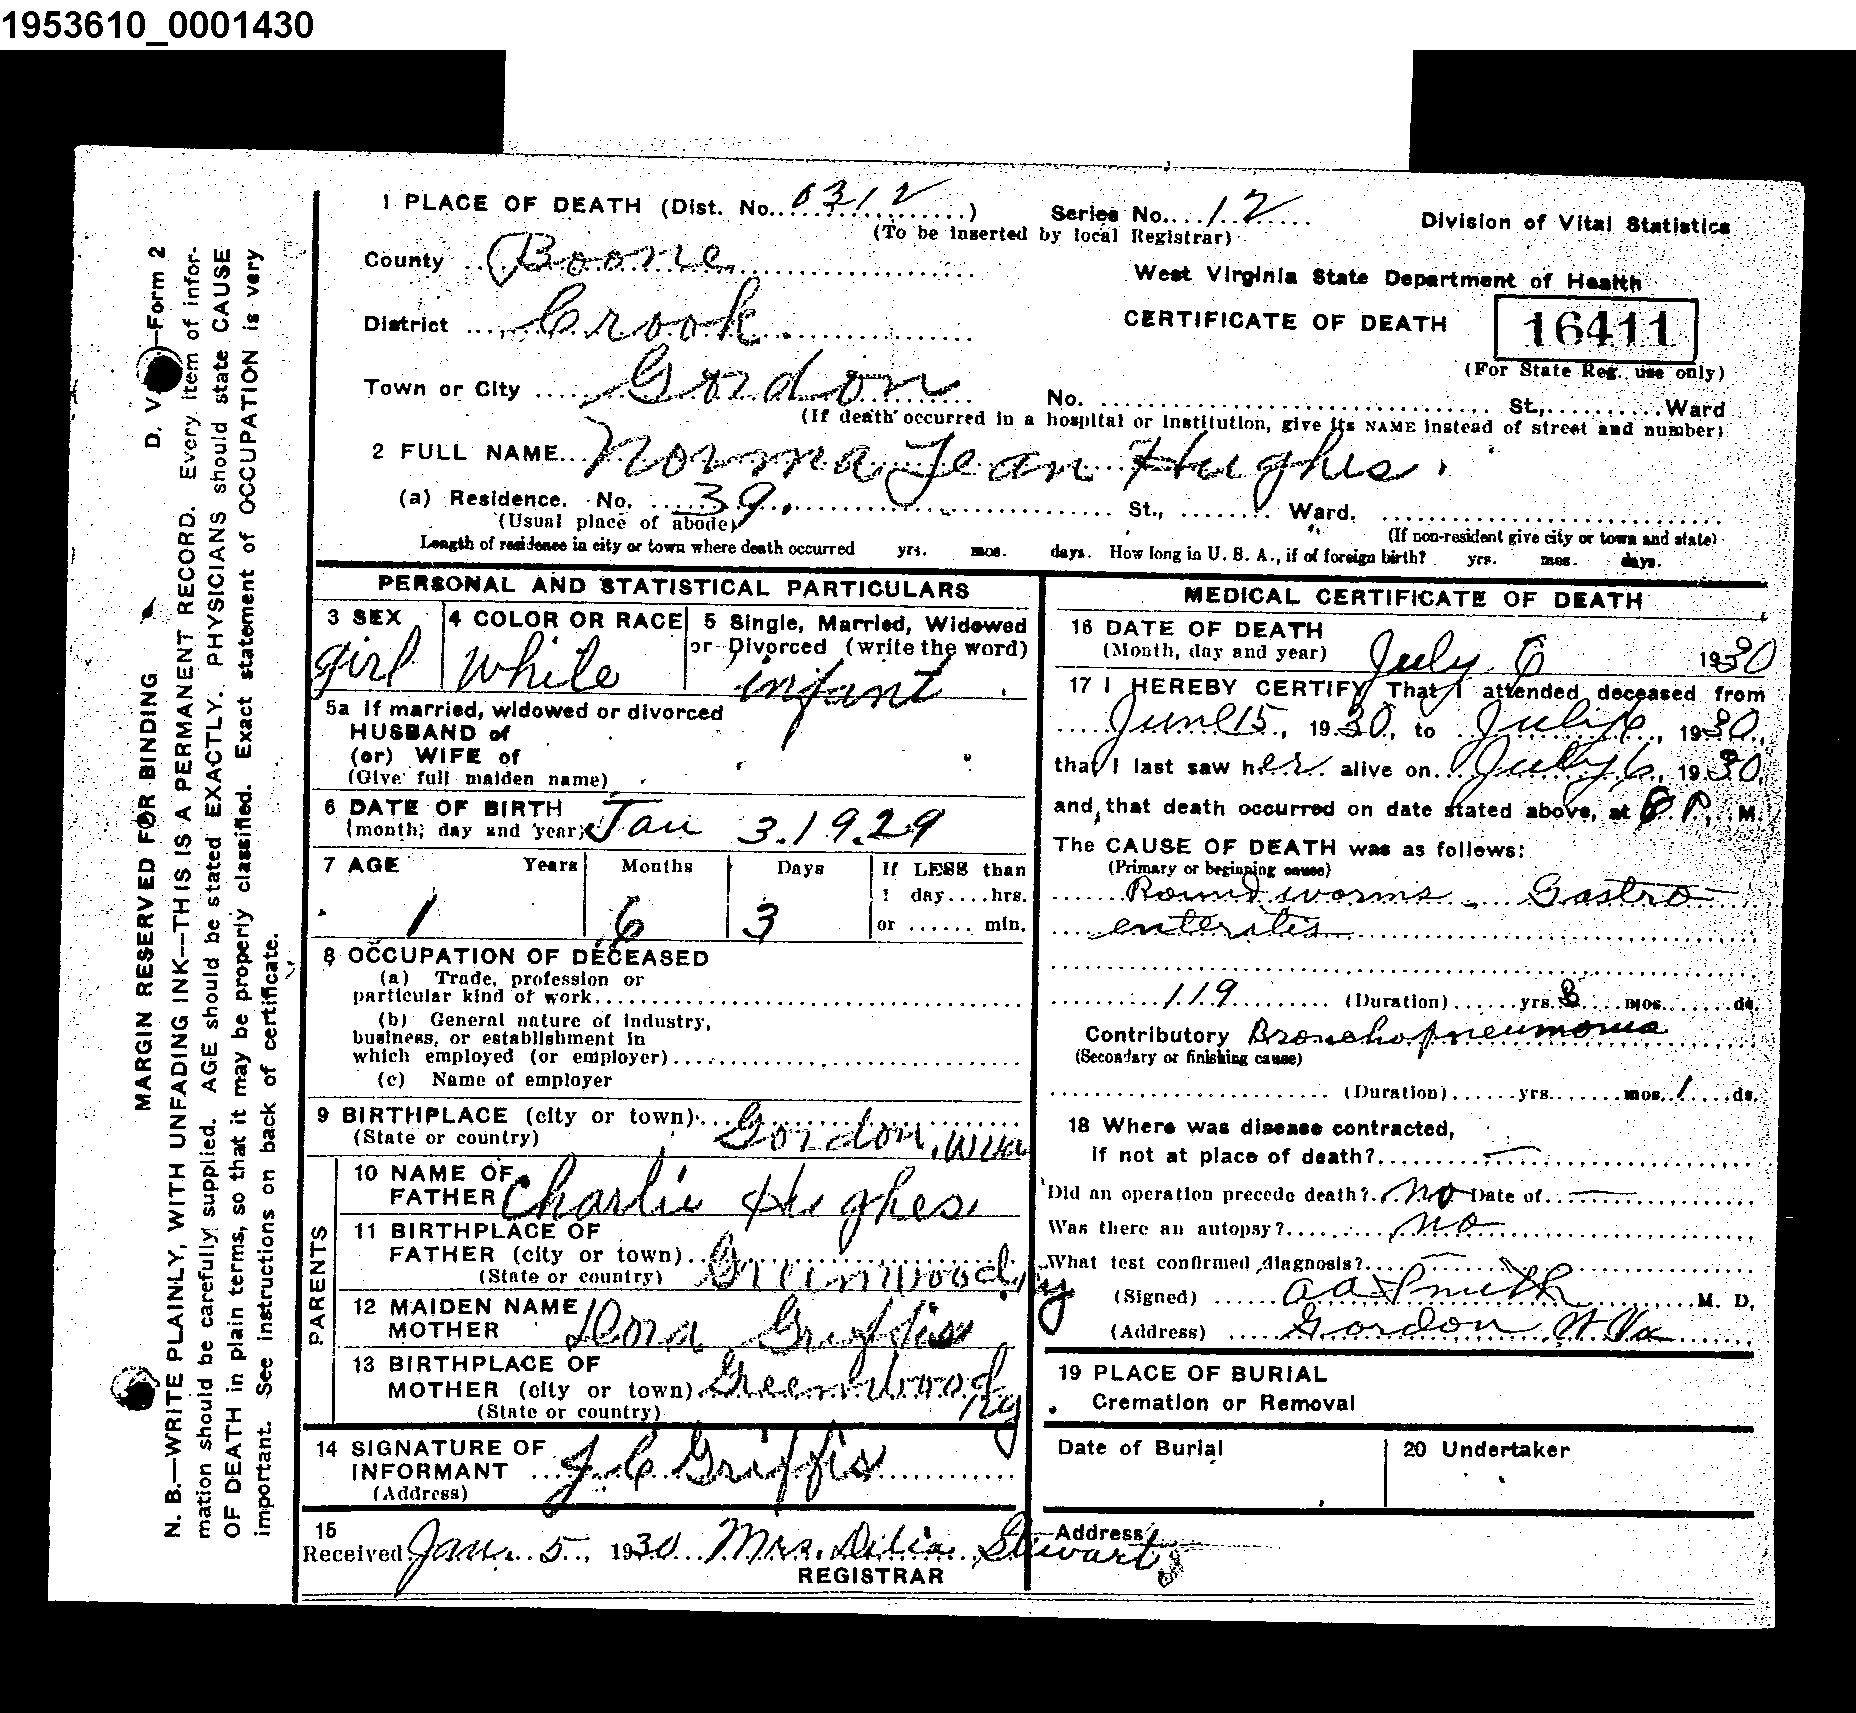 1953610_0001430
1 PLACE OF DEATH (Dist. No. 0312) Series No. 12 Division of Vital Statistics
(To be inserted by local Registrar)
County Boone
West Virginia State Department of Health
District Crook CERTIFICATE OF DEATH 16411
(For State Reg. use only)
Town or City Gordon No. St., Ward
(If death occurred in a hospital or institution, give its NAME instead of street and number)
2 FULL NAME Norma Jean Hughes
(a) Residence. No. 39. St., Ward.
(Usual place of abode) (If non-resident give city or town and state)
Length of residence in city or town where death occurred yrs. mos. days. How long in U. S. A., if of foreign birth? yrs. mos. days.
PERSONAL AND STATISTICAL PARTICULARS
3 SEX 4 COLOR OR RACE 5 Single, Married, Widowed
or Divorced (write the word)
girl white infant
5a If married, widowed or divorced
HUSBAND of
(or) WIFE of
(Give full maiden name)
6 DATE OF BIRTH
(month, day and year) Jan 3. 1929
7 AGE Years Months Days If LESS than
1 day....hrs.
1 6 3 or ...... min.
8 OCCUPATION OF DECEASED
(a) Trade, profession or
particular kind of work
(b) General nature of industry,
business, or establishment in
which employed (or employer)
(c) Name of employer
9 BIRTHPLACE (city or town) Gordon, WVa
(State or country)
PARENTS
10 NAME OF
FATHER Charlie Hughes
11 BIRTHPLACE OF
FATHER (city or town) Greenwood, Ky
(State or country)
12 MAIDEN NAME
MOTHER Dora Griffis
13 BIRTHPLACE OF
MOTHER (city or town) Greenwood Ky
(State or country)
14 SIGNATURE OF
INFORMANT J C Griffis
(Address)
15
Received Jan. 5, 1930 Mrs. Delia Stewart
REGISTRAR
MEDICAL CERTIFICATE OF DEATH
16 DATE OF DEATH
(Month, day and year) July 6 1930
17 I HEREBY CERTIFY That I attended deceased from
June 15, 1930, to July 6, 1930,
that I last saw her alive on July 6, 1930,
and that death occurred on date stated above, at P. M.
The CAUSE OF DEATH was as follows:
(Primary or beginning cause)
Round worms - Gastro
enteritis
119 (Duration) yrs. mos. ds.
Contributory Bronchopneumonia
(Secondary or finishing cause)
(Duration) yrs. mos. 1 ds.
18 Where was disease contracted,
if not at place of death? —
Did an operation precede death? No Date of —
Was there an autopsy? no
What test confirmed diagnosis? —
(Signed) A A Smith M. D.
(Address) Gordon W Va
19 PLACE OF BURIAL
Cremation or Removal
Date of Burial 20 Undertaker
Address
D. V —Form 2
MARGIN RESERVED FOR BINDING
N. B.—WRITE PLAINLY, WITH UNFADING INK—THIS IS A PERMANENT RECORD. Every item of infor-
mation should be carefully supplied. AGE should be stated EXACTLY. PHYSICIANS should state CAUSE
OF DEATH in plain terms, so that it may be properly classified. Exact statement of OCCUPATION is very
important. See instructions on back of certificate.